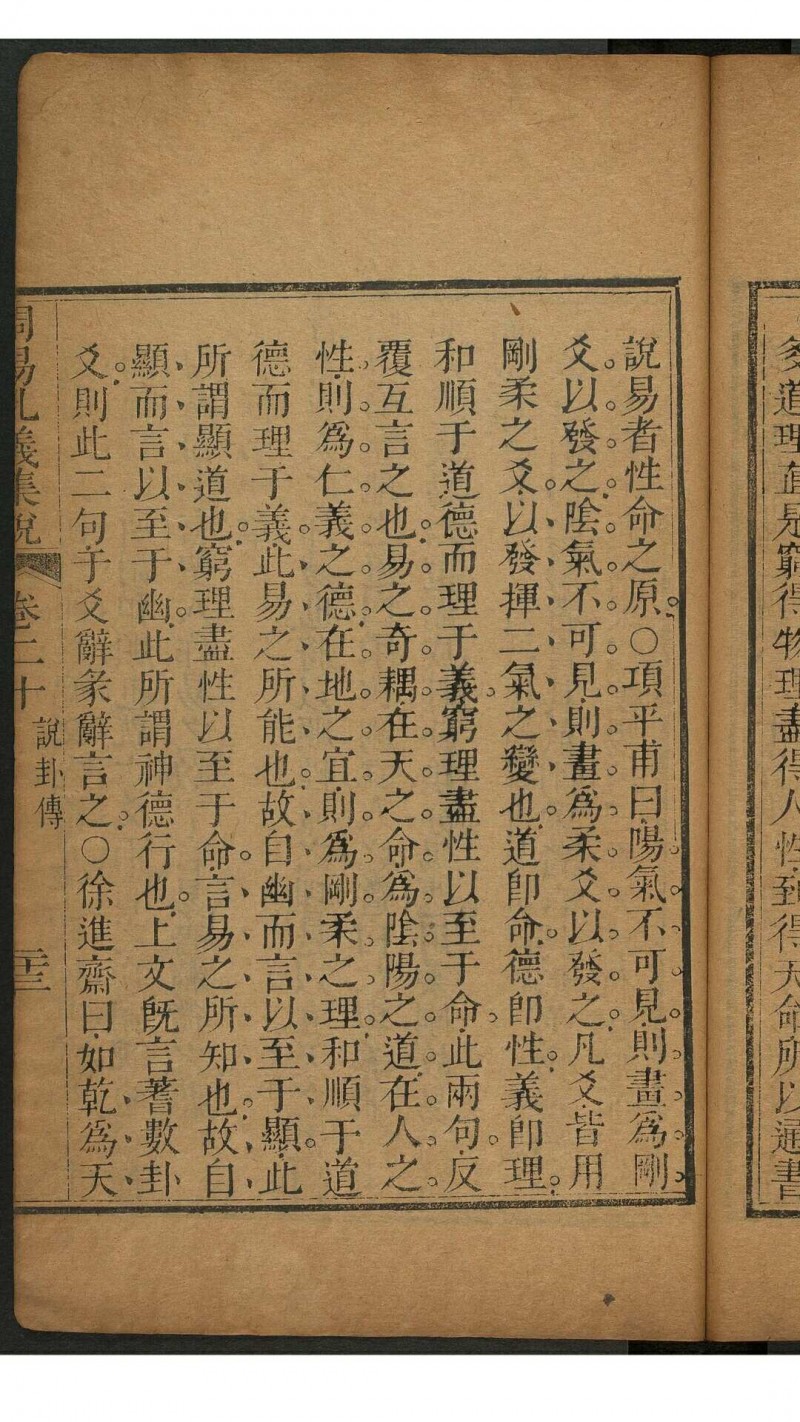 爻道理直是窮得物理盡得人性到得天命所以通書
說易者性命之原○項平甫曰陽氣不可見則畫為剛
爻以發之陰氣不可見則畫為柔爻以發之凡爻皆用
剛柔之爻以發揮二氣之變也道卽命德卽性義卽理
和順于道德而理于義窮理盡性以至于命此兩句反
覆互言之也易之奇耦在天之命為陰陽之道在人之
性則為仁義之德在地之宜則為剛柔之理和順于道
德而理于義此易之所能也故自幽而言以至于顯此
所謂顯道也窮理盡性以至于命言易之所知也故自
顯而言以至于幽此所謂神德行也上文旣言蓍數卦
爻則此二句于爻辭彖辭言之○徐進齋曰如乾為天
周易孔義集說 卷二十 說卦傳 二十三